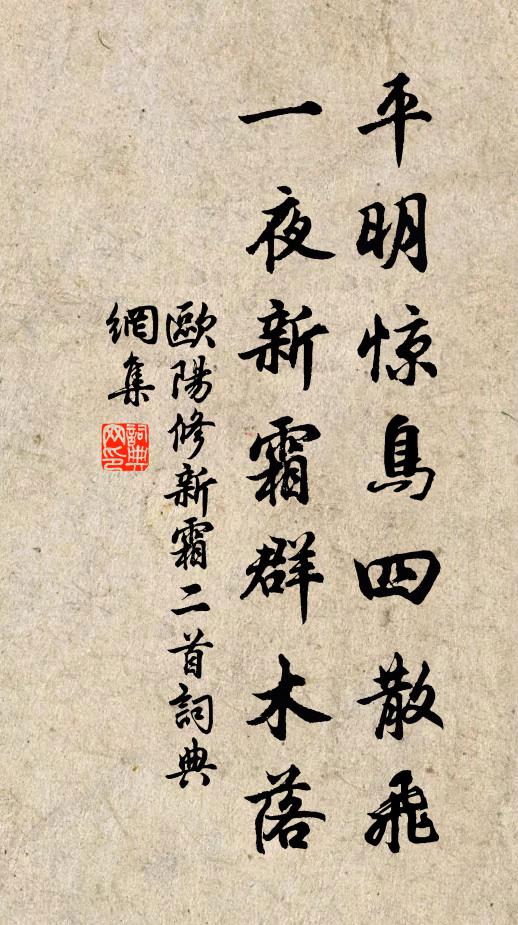 平明惊鳥四散飛
一夜新霜群木落
歐陽修新霜二首詞典
網集
詞典
网印